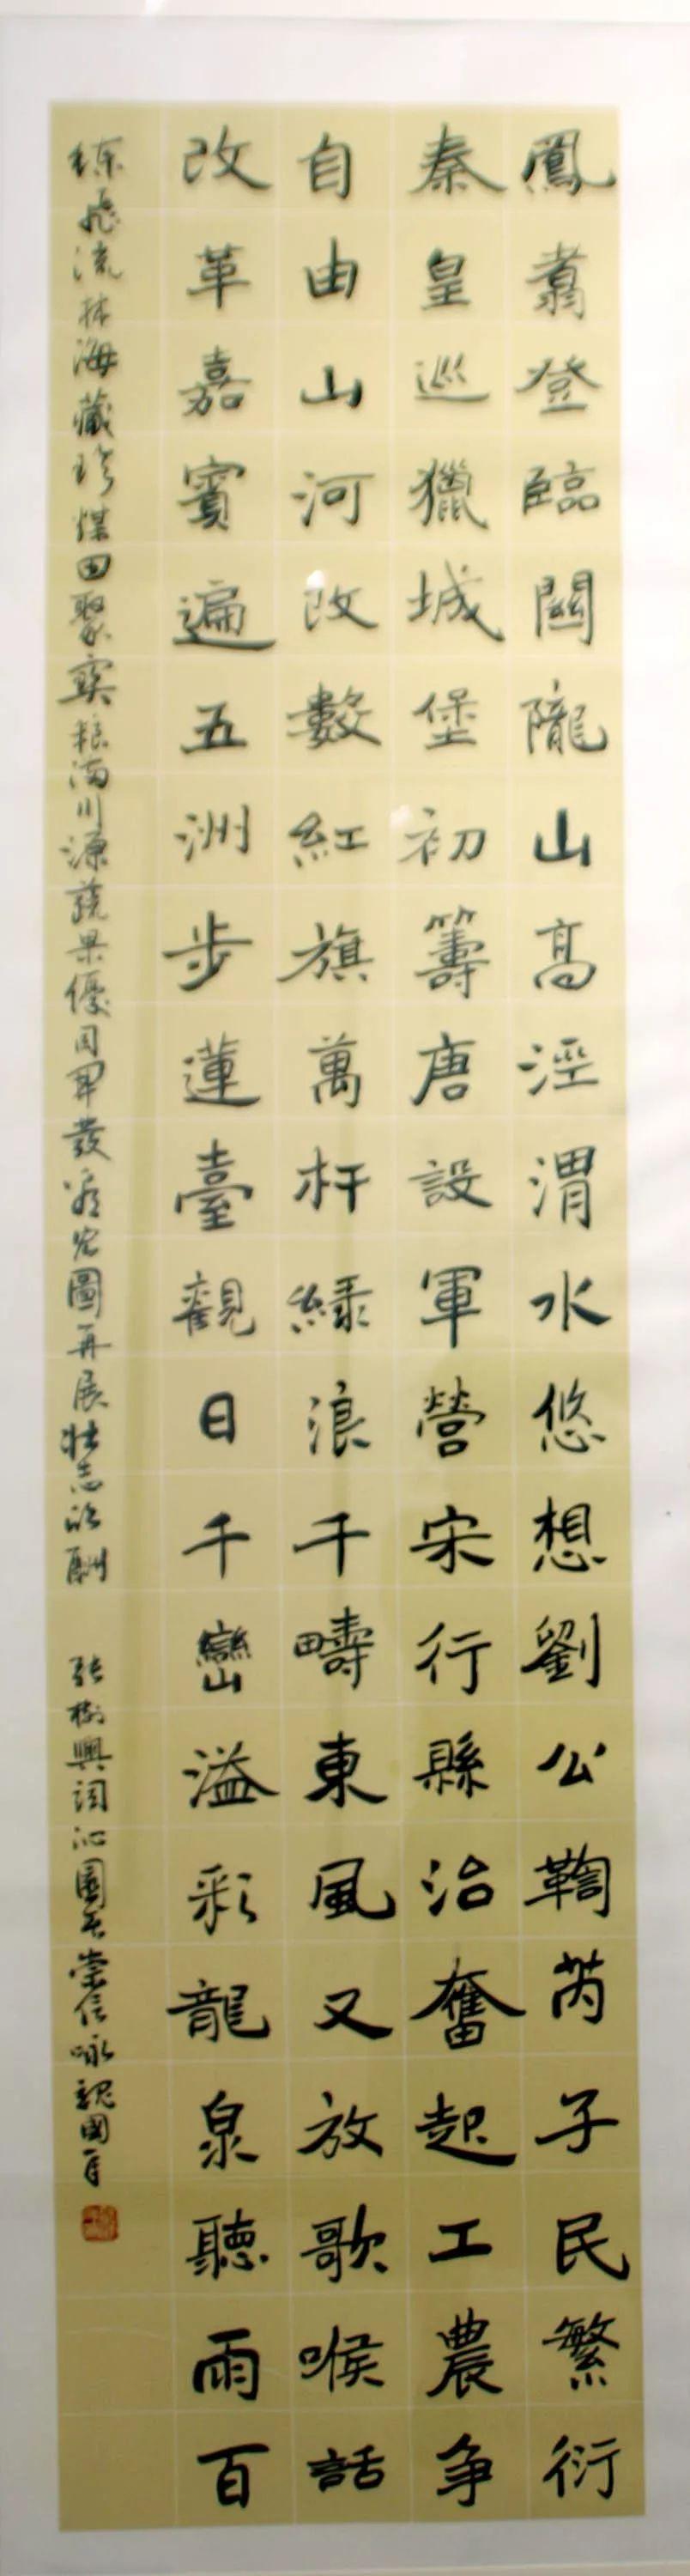 鳳翥登臨關隴山高涇渭水悠想劉公鞫芮子民繁衍
秦皇巡獵城堡初籌唐設軍營宋行縣治奮起工農爭
自由山河改數紅旗萬杆綠浪千疇東風又放歌喉話
改革嘉賓遍五洲步蓮臺觀日千巒溢彩龍泉聽雨百
練飛流林海藏珍煤田聚寶粮滿川源蔬果優同軍發宏圖再展壯志酬
張樹興詞沁園春崇信咏魏國